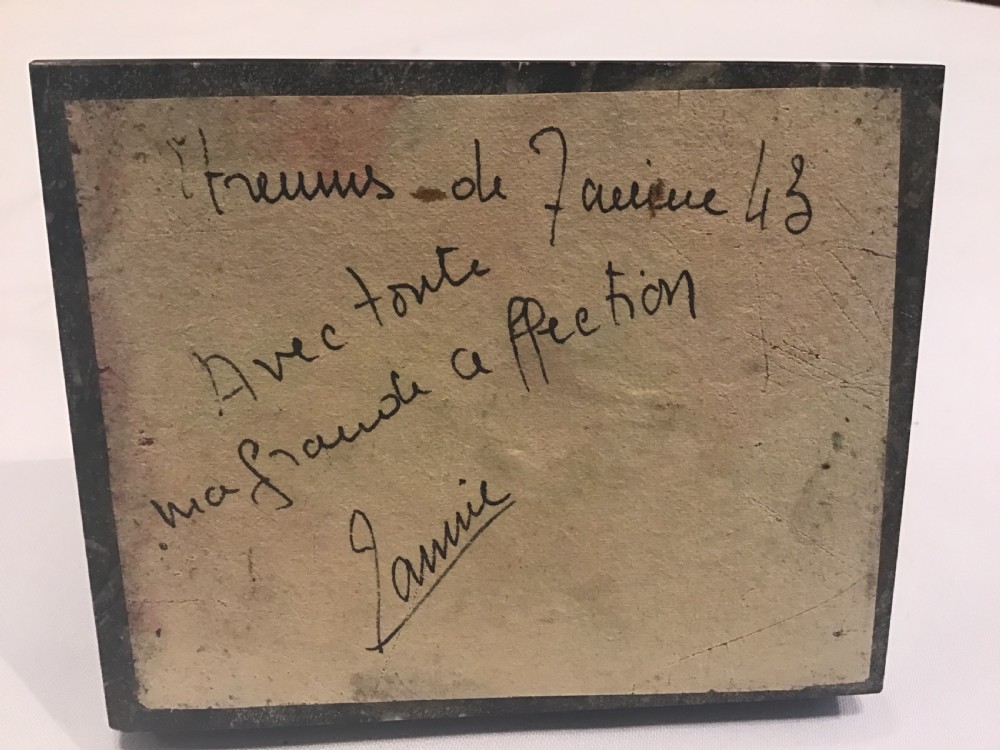 Etrennes de Janine 43
Avec toute
ma grande affection
Janine